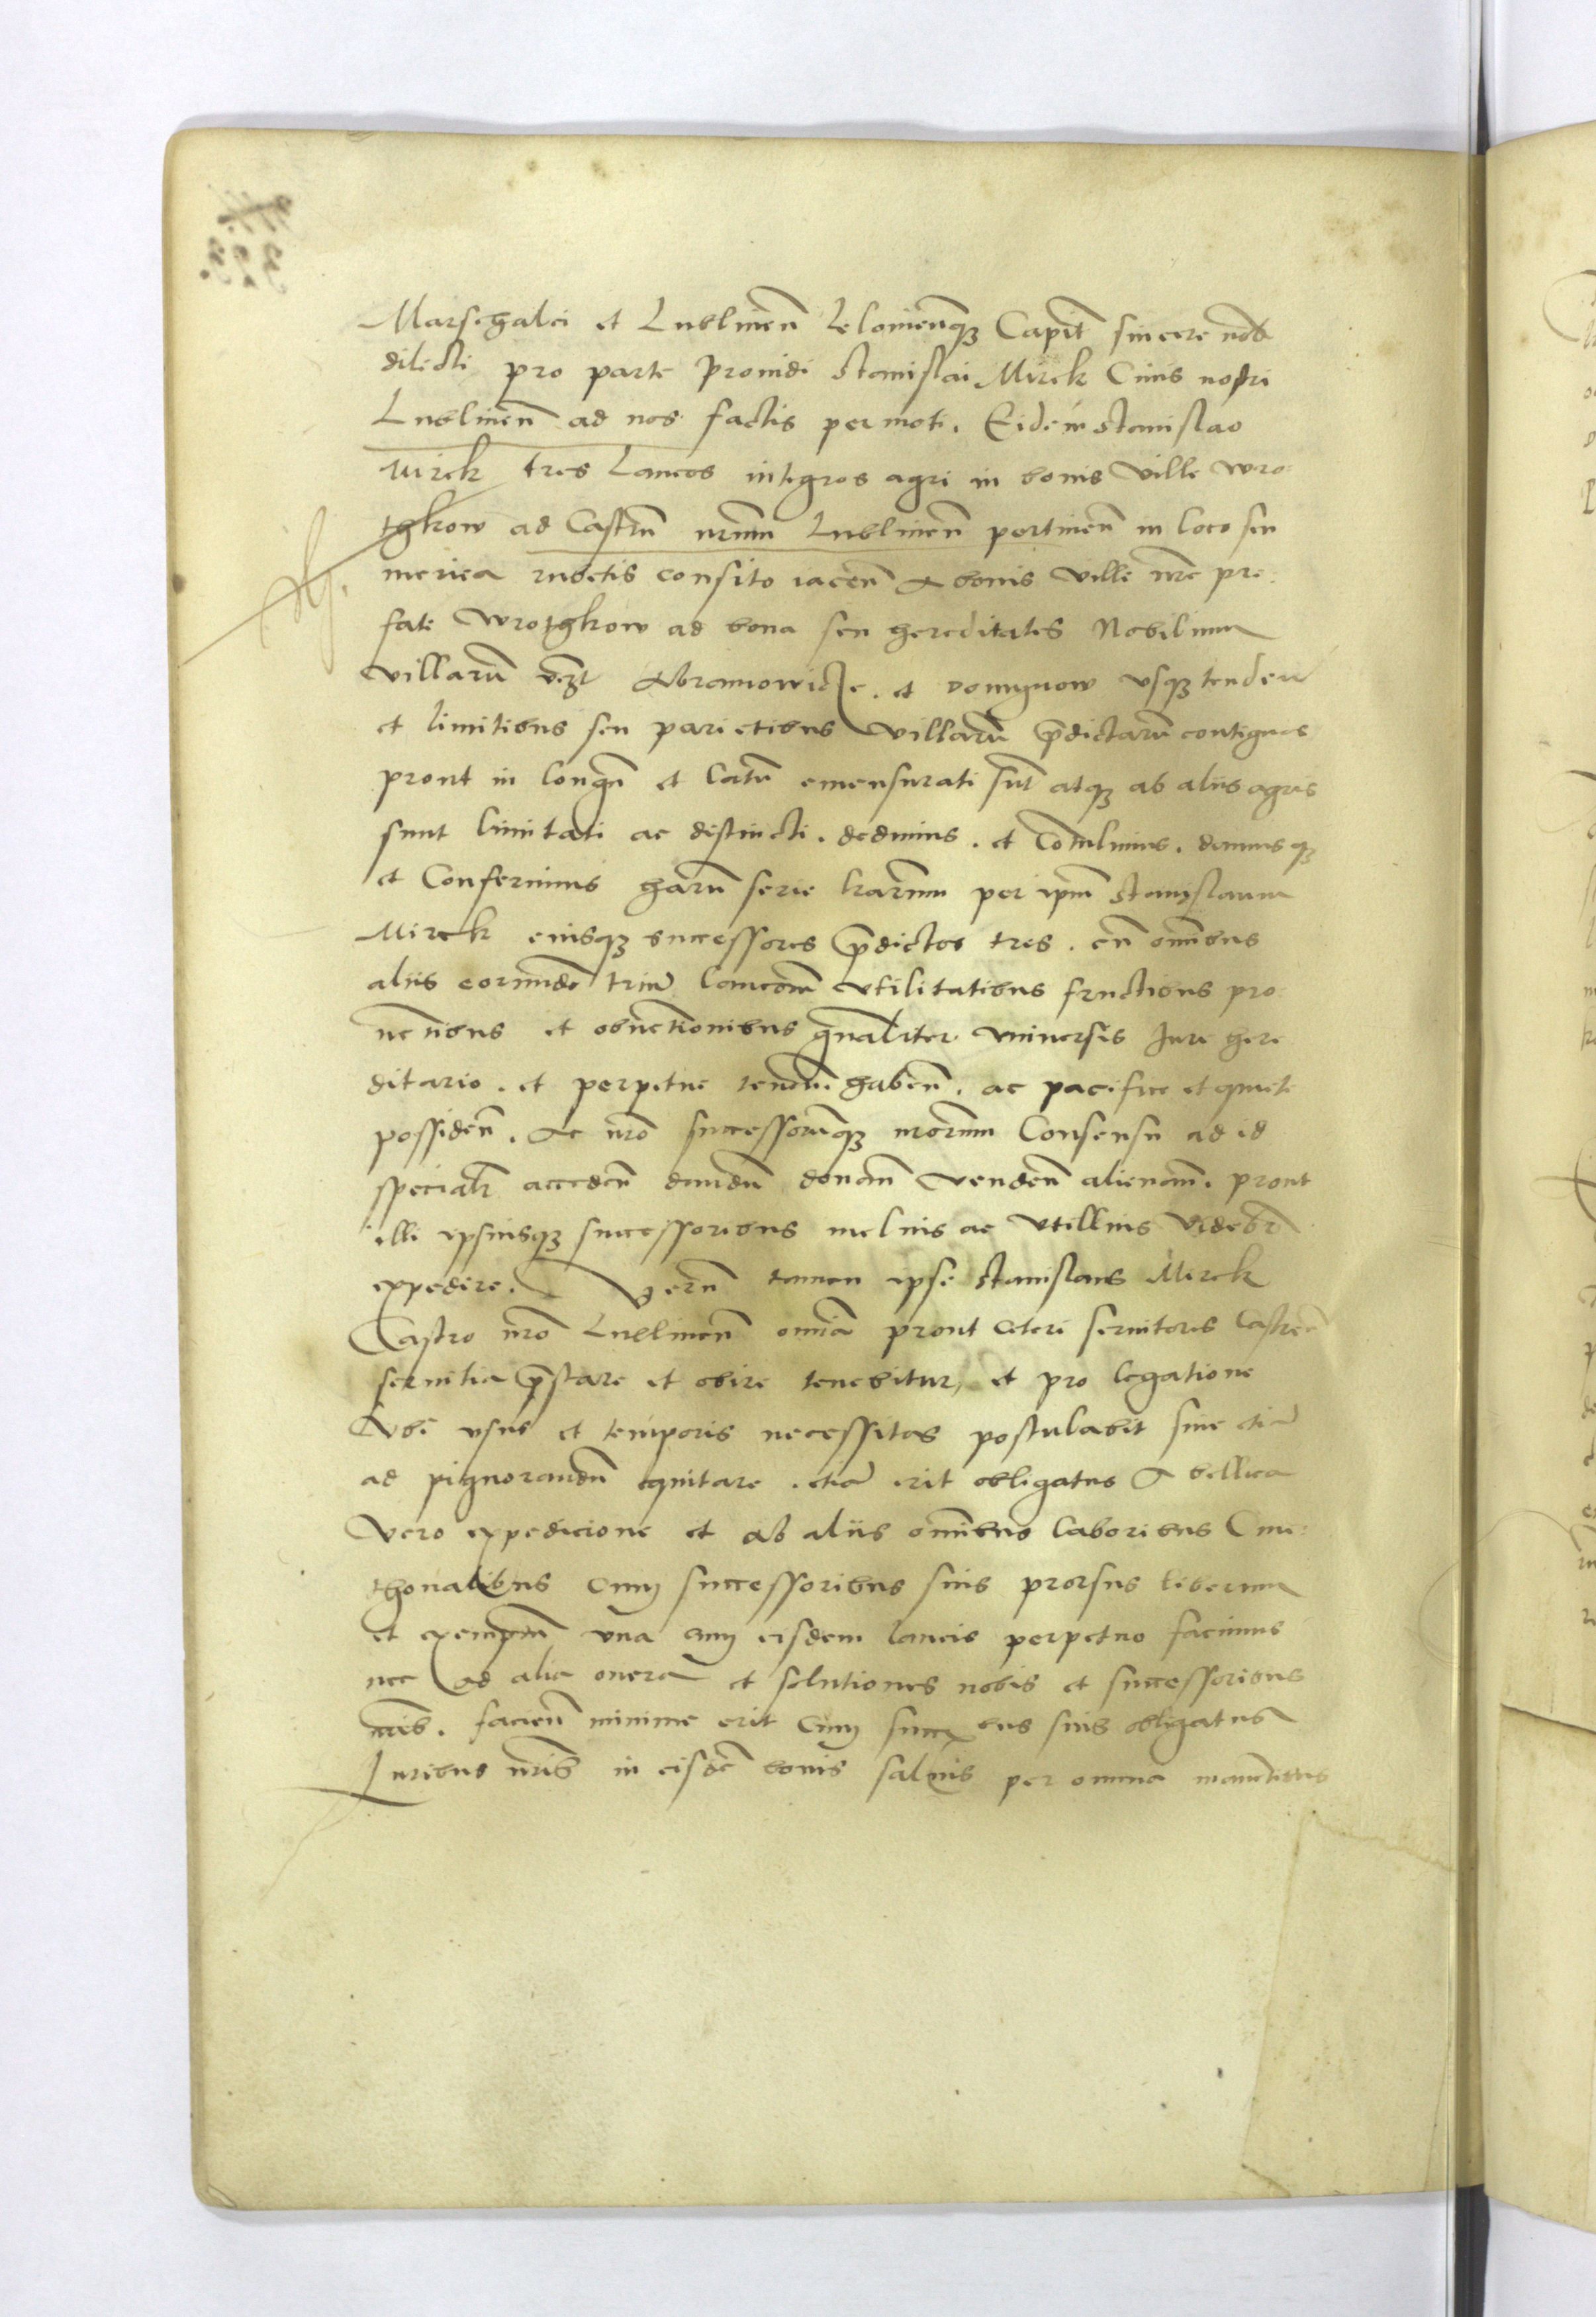 Marschalci et Lublineñ Lelovieñqꝫ Capit̃ sincere nob̃
dilecti pro parte providi Stanislai Mirek Civis nostri
Lublineñ ad nos factis permoti. Eidem Stanislao
Mirek tres Laneos integros agri in bonis Ville Wro:
thkow ad Castrũ nr̃um Lublineñ pertineñ in loco seu
merica rubetis consito iaceñ A bonis ville nr̃e pre:
fate Wrothkow ad bona seu hereditates Nobilium
villarũ vꝫt Abramowicze. et Domynow vsqꝫ tendeñ
et limitibus seu parietibus villarũ p̃dictarũ contiguos
prout in longũ et latũ emensurati sũt atqꝫ ab aliis agris
sunt limitati ac distincti. dedimus. et Cõtulimus. damusqꝫ
et Conferimus harũ serie l̃rarum per ip̃m Stanyslaum
Mirek eiusqꝫ successores p̃dictos tres. cũ om̃ibus
aliis eorundẽ triũ laneorũ vtilitatibus fructibus pro
ventibus et obventionibus gñaliter vniversis Jure here
ditario. et perpetue teneñ. habeñ. ac pacifice et quiete
possideñ. Ac nr̃o successorũqꝫ nr̃orum Consensu ad id
specialr̃ accedeñ dandũ donañ vendeñ alienañ. prout
illi ipsiusqꝫ successoribus melius ac vtilius videbr̃
expedire. Verũ tamen ipse Stanislaus Mirek
Castro nr̃o Lublineñ omñia prout ceteri servitores Castreñ
servitia p̃stare et obire tenebitur, et pro legatione
Vbi vsus et temporis necessitas postulabit sive etiã
ad pignorandũ equitare. etiã erit obligatus A bellica
vero expedicione et ab aliis om̃ibus laboribus Cme:
thonalibus cum successoribus suis prorsus liberum
et exemptum vna cum eisdem laneis perpetuo facimus
nec ad alia onera et solutiones nobis et successoribus
nr̃is. facieñ minime erit cum succꝫbus suis obligatus
Juribus nr̃is in eisdẽ bonis salvis per omnia manentibus